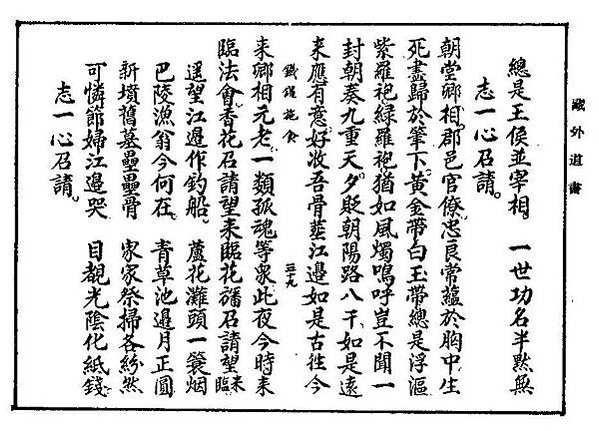 藏外道書
總是王侯並宰相。 一世功名半點無
志一心召請。
朝堂卿相郡邑官僚忠良常蘊於胸中生
死盡歸於筆下黃金帶白玉帶總是浮漚
紫羅袍綠羅袍猶如風燭嗚呼豈不聞一
封朝奏九重天夕貶朝陽路八千如是遠
来應有意好收吾骨塟江邊如是古往今
鐵鑵施食
来卿相元老一類孤魂等衆此夜今時来
臨法會香花召請望来臨花旛召請望来臨
遥望江邊作釣船。 蘆花灘頭一簑烟
巴陵漁翁今何在。 青草池邊月正圓
新墳舊墓壘壘骨 家家祭掃各紛然
可憐節婦江邊哭 目覩光陰化紙錢
志一心召請。